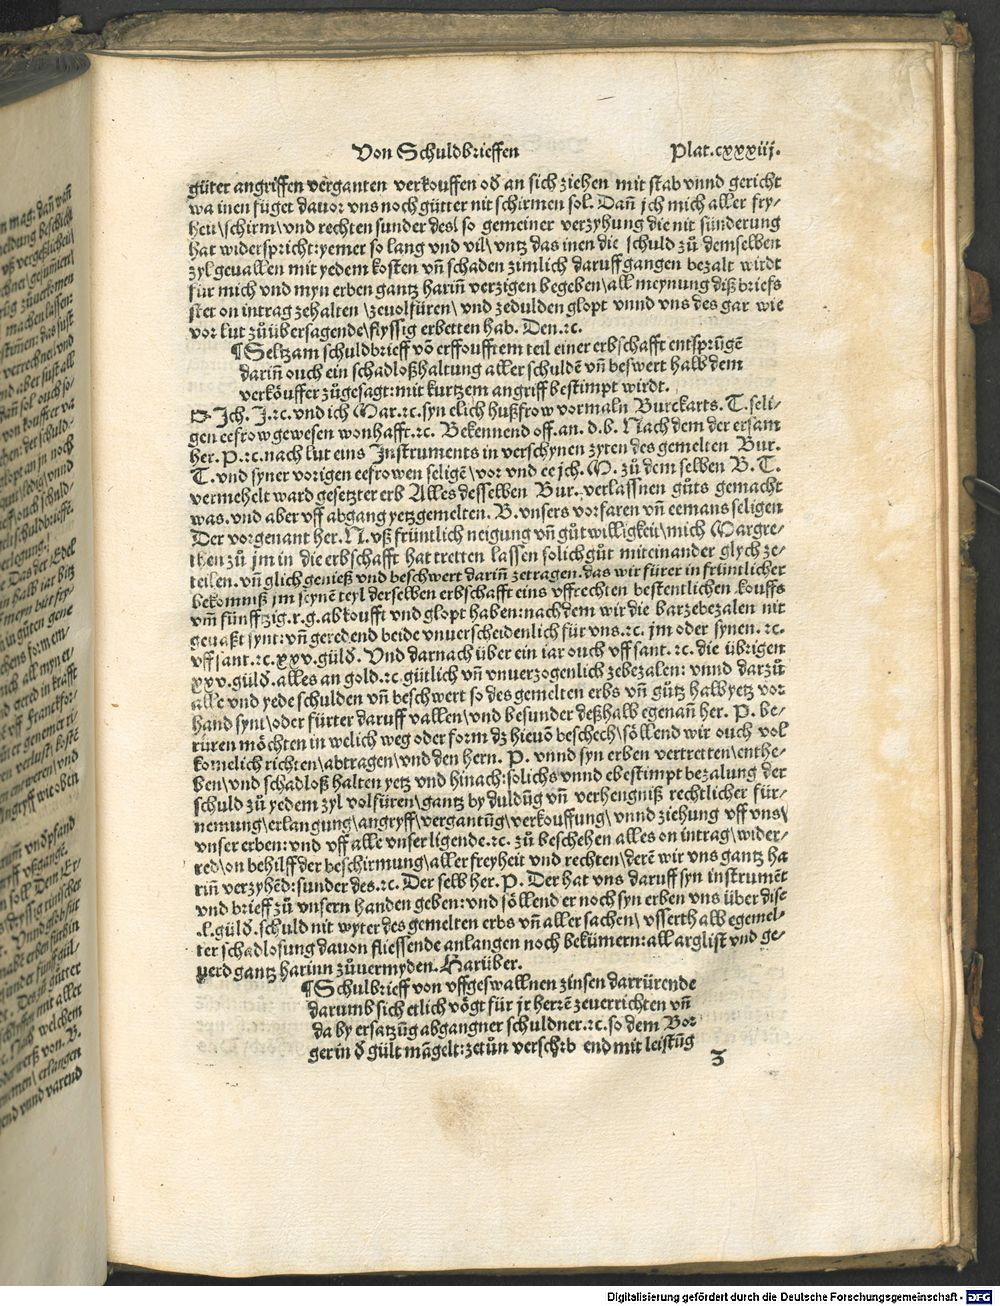 Von Schuldbrieffen Plat.cxxxiij.
güter angriffen verganten verkouffen od̄ an sich ziehen mit stab vnnd gericht
wa inen füget dauor vns noch gütter nit schirmen sol. Dañ jch mich aller fry-
heit\schirm\vnd rechten sunder des\ so gemeiner verzyhung die nit sünderung
hat widerspricht: yemer so lang vnd vil\vntz das inen die schuld zů demselben
zyl geuallen mit yedem kosten vñ schaden zimlich daruff gangen bezalt wirdt
für mich vnd myn erben gantz hariñ verzigen begeben\all meynung diß briefs
stet on intrag zehalten \zeuolfüren\ vnd zedulden glopt vnnd vns des gar wie
vor lut zůübersagende\flyssig erbetten hab. Den.ꝛc.
¶Seltzam schuldbrieff võ erffoufftem teil einer erbschafft entsprũgē
dariñ ouch ein schadloßhaltung aller schuldē vñ beswert halb dem
verköuffer zůgesagt: mit kurtzem angriff bestimpt wirdt.
Jch. J.ꝛc. vnd ich Mar.ꝛc. syn elich hußfrow vormaln Burckarts. T. seli-
gen eefrow gewesen wonhafft.ꝛc. Bekennend off. an. d. b. Nach dem der ersam
her. P.ꝛc. nach lut eins Instruments in verschynen zyten des gemelten Bur.
T. vnd syner vorigen eefrowen seligē\vor vnd ee jch. M. zů dem selben B. T.
vermehelt ward gesetzter erb Alles desselben Bur. verlassnen gůts gemacht
was. vnd aber vff abgang yetzgemelten. B. vnsers vorfaren vñ eemans seligen
Der vorgenant her. N. vß früntlich neigung vñ gůtwilligkeit\mich Margre-
then zů jm in die erbschafft hat tretten lassen solich gůt miteinander glych ze-
teilen. vñ glich genieß vnd beschwert dariñ zetragen. das wir fürer in früntlicher
bekomniß jm seynē teyl derselben erbschafft eins vffrechten bestentlichen kouffs
vm̄ fünfftzig.r.g. abkoufft vnd glopt haben: nach dem wir die bar zebezalen nit
geuaßt synt: vñ geredend beide vnuerscheidenlich für vns.ꝛc. jm oder synen.ꝛc.
vff sant.ꝛc.xxv.güld. Vnd darnach über ein iar ouch vff sant.ꝛc. die übrigen
xxv.güld.alles an gold.ꝛc gütlich vñ vnuerzogenlich zebezalen: vnnd darzů
alle vnd yede schulden vñ beschwert so des gemelten erbs vñ gůtz halb yetz vor
hand synt\oder fürter daruff vallen\vnd besunder deßhalb egenañ her. P. be-
rüren möchten in welich weg oder form dz hieuõ beschech\söllend wir ouch vol
komelich richten\abtragen\vnd den hern. P. vnnd syn erben vertretten\enthe-
ben\vnd schadloß halten yetz vnd hinach: solichs vnnd ebestimpt bezalung der
schuld zů yedem zyl volfüren\gantz by duldũg vñ verhengniß rechtlicher für-
nemung\erlangung\angryff\vergantũg\verkouffung\ vnnd ziehung vff vns\
vnser erben: vnd vff alle vnser ligende.ꝛc. zů beschehen alles on intrag\wider-
red\on behilff der beschirmung\aller freyheit vnd rechten\derē wir vns gantz ha
riñ verzyhēd: sunder des.ꝛc. Der selb her. P. Der hat vns daruff syn instrumēt
vnd brieff zů vnsern handen geben: vnd söllend er noch syn erben vns über dise
.l.güld.schuld nit wyter des gemelten erbs vñ aller sachen\ vsserthalb egemel-
ter schadlosung dauon fliessende anlangen noch bekümern: all arglist vnd ge-
uerd gantz harinn zůuermyden. Harüber.
¶Schulbrieff von vffgeswallnen zinsen darrürende
darumb sich etlich vögt für jr herrē zeuerrichten vñ
da by ersatzũg abgangner schuldner.ꝛc. so dem Bor
ger in d̄ gült mãgelt: zetůn verschrb end mit leistũg
Digitalisierung gefördert durch die Deutsche Forschungsgemeinschaft - DFG